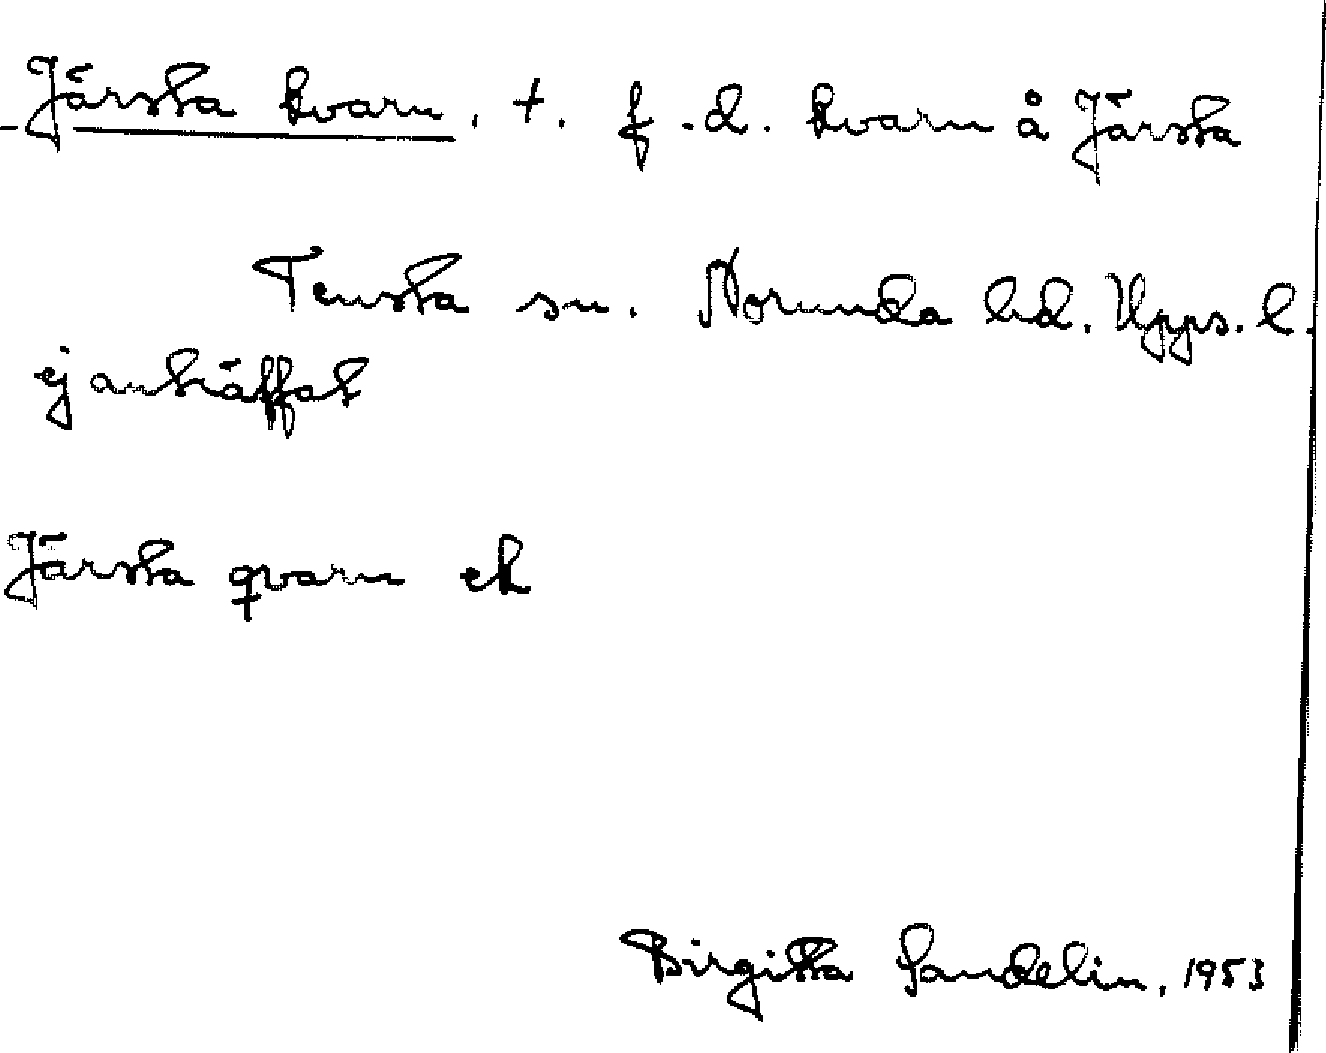 Järsta kvarn. †. f.d. kvarn å Järsta
Tensta sn. Norunda hd. Upps. l.
ej anträffat
Järsta qvarn ek
Birgitta Sandelin, 1953